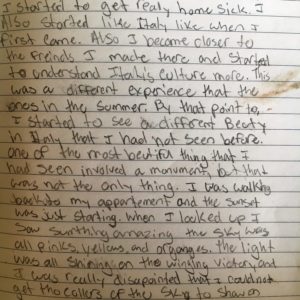 I started to get realy home sick. I
Also started like Italy like when I
first came. Also I become closer to
the Freinds I made there and started
to understand Italis culture more. This
was a different experience that the
ones in the summer. By that point to,
I started to see a different Beaty
in Italy that I had not seen before.
one of the most beutiful thing that I
had seen involved a monument, but that
was not the only thing. I was walking
back to my appartement and the sunset
was just starting. When I looked up I
saw sumthing amazing the sky was
all pinks, yellows and organges. The light
was all shining on the winging victory, and
I was really disapointed that I could not
get the collers of the sky to show